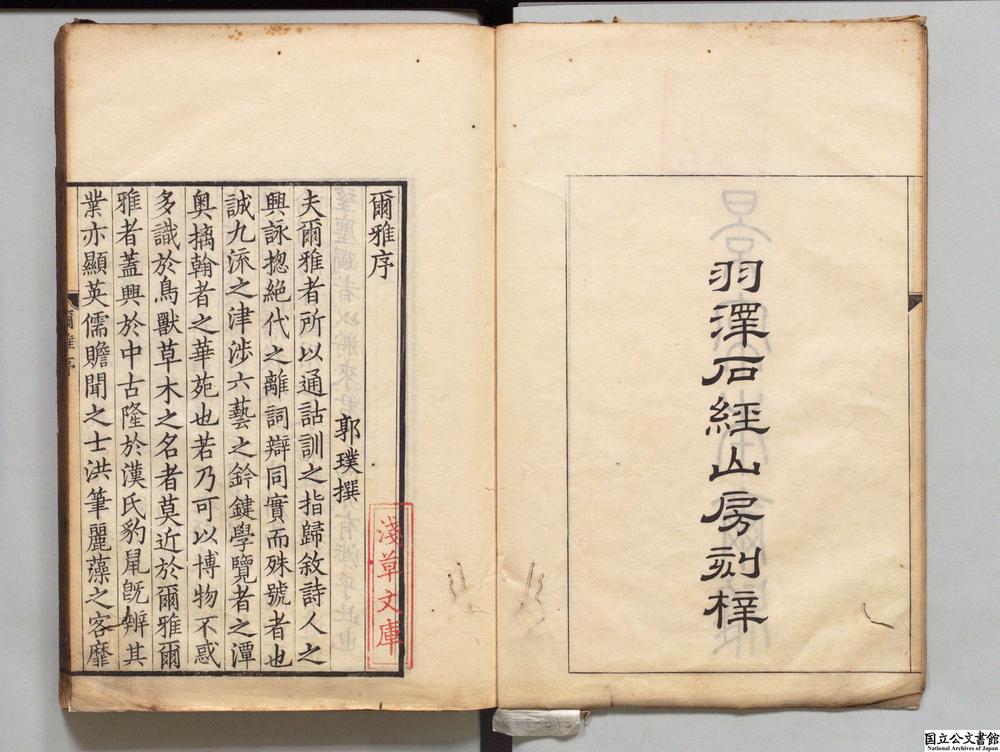 羽澤石經山房刻梓
爾雅序
郭璞撰
夫爾雅者所以通詁訓之指歸敘詩人之
興詠揔絕代之離詞辯同實而殊號者也
誠九流之津涉六藝之鈐鍵學覽者之潭
奧摛翰者之華苑也若乃可以博物不惑
多識於鳥獸草木之名者莫近於爾雅爾
雅者蓋興於中古隆於漢氏豹鼠旣辨其
業亦顯英儒贍聞之士洪筆麗藻之客靡
爾雅序
淺草文庫
国立公文書館
National Archives of Japan